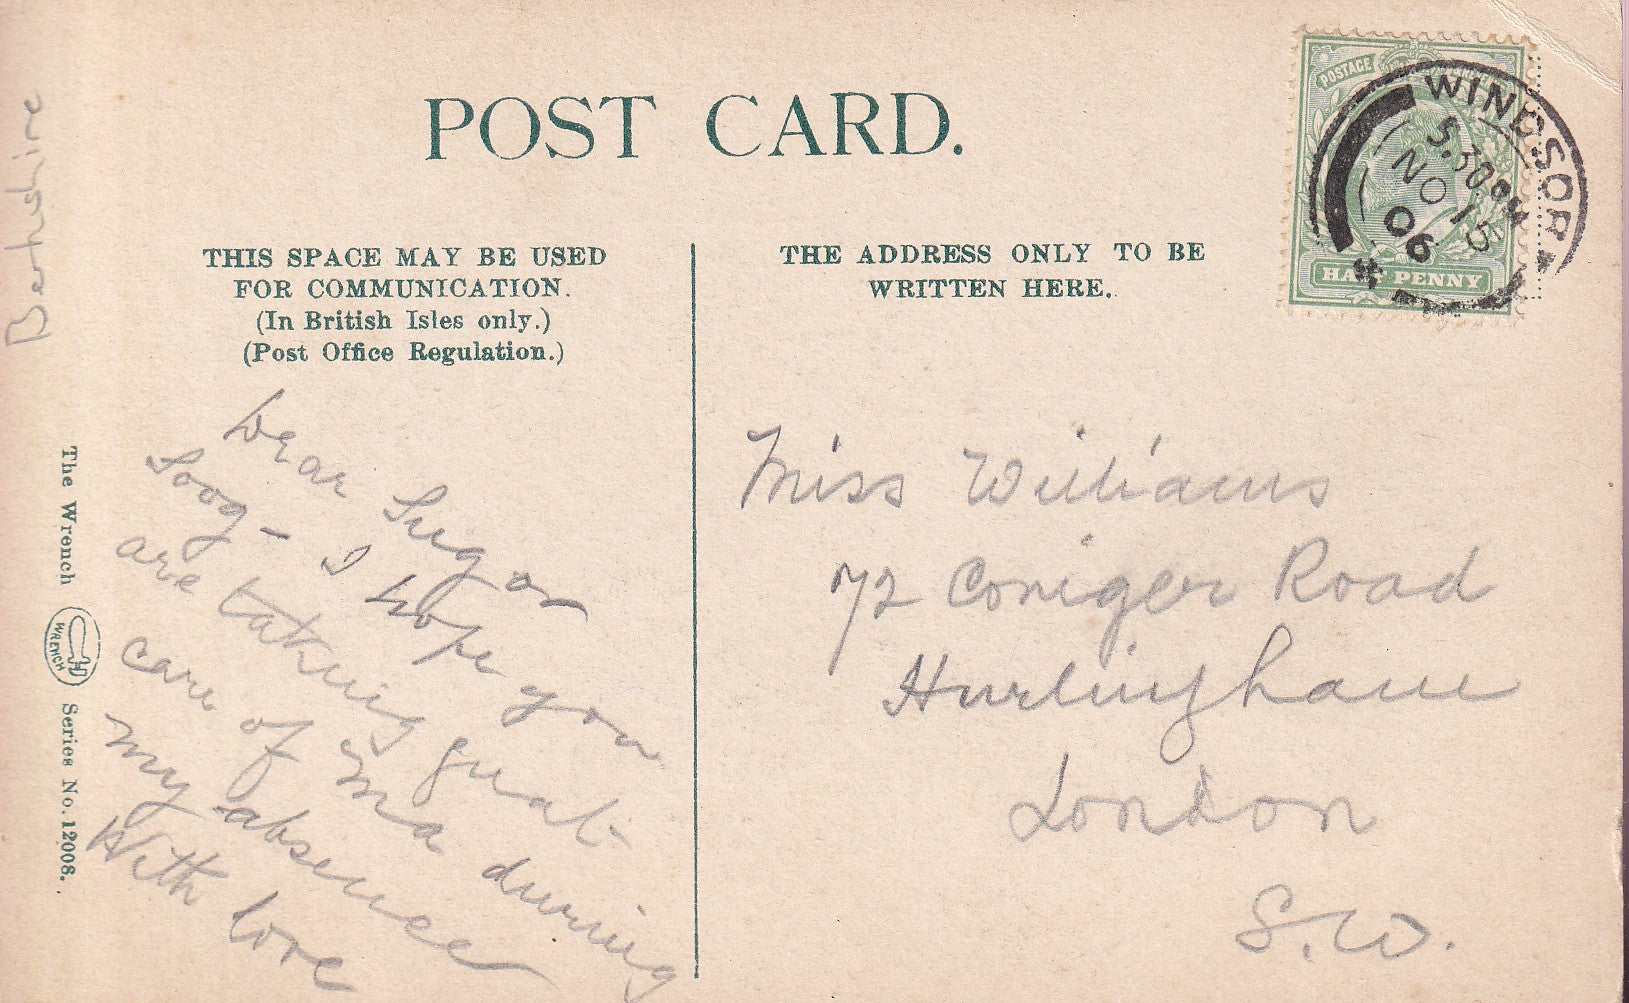 POST CARD.
THIS SPACE MAY BE USED
FOR COMMUNICATION.
(In British Isles only.)
(Post Office Regulation.)
THE ADDRESS ONLY TO BE
WRITTEN HERE.
POSTAGE
HALF PENNY
WINDSOR
5.30PM
NO 15
06
Berkshire
The Wrench
WRENCH
Series No. 12008.
Dear Sugar
Soog - I hope you
are taking great
care of Ma during
my absence
With love
Miss Williams
72 Coniger Road
Hurlingham
London
S.W.